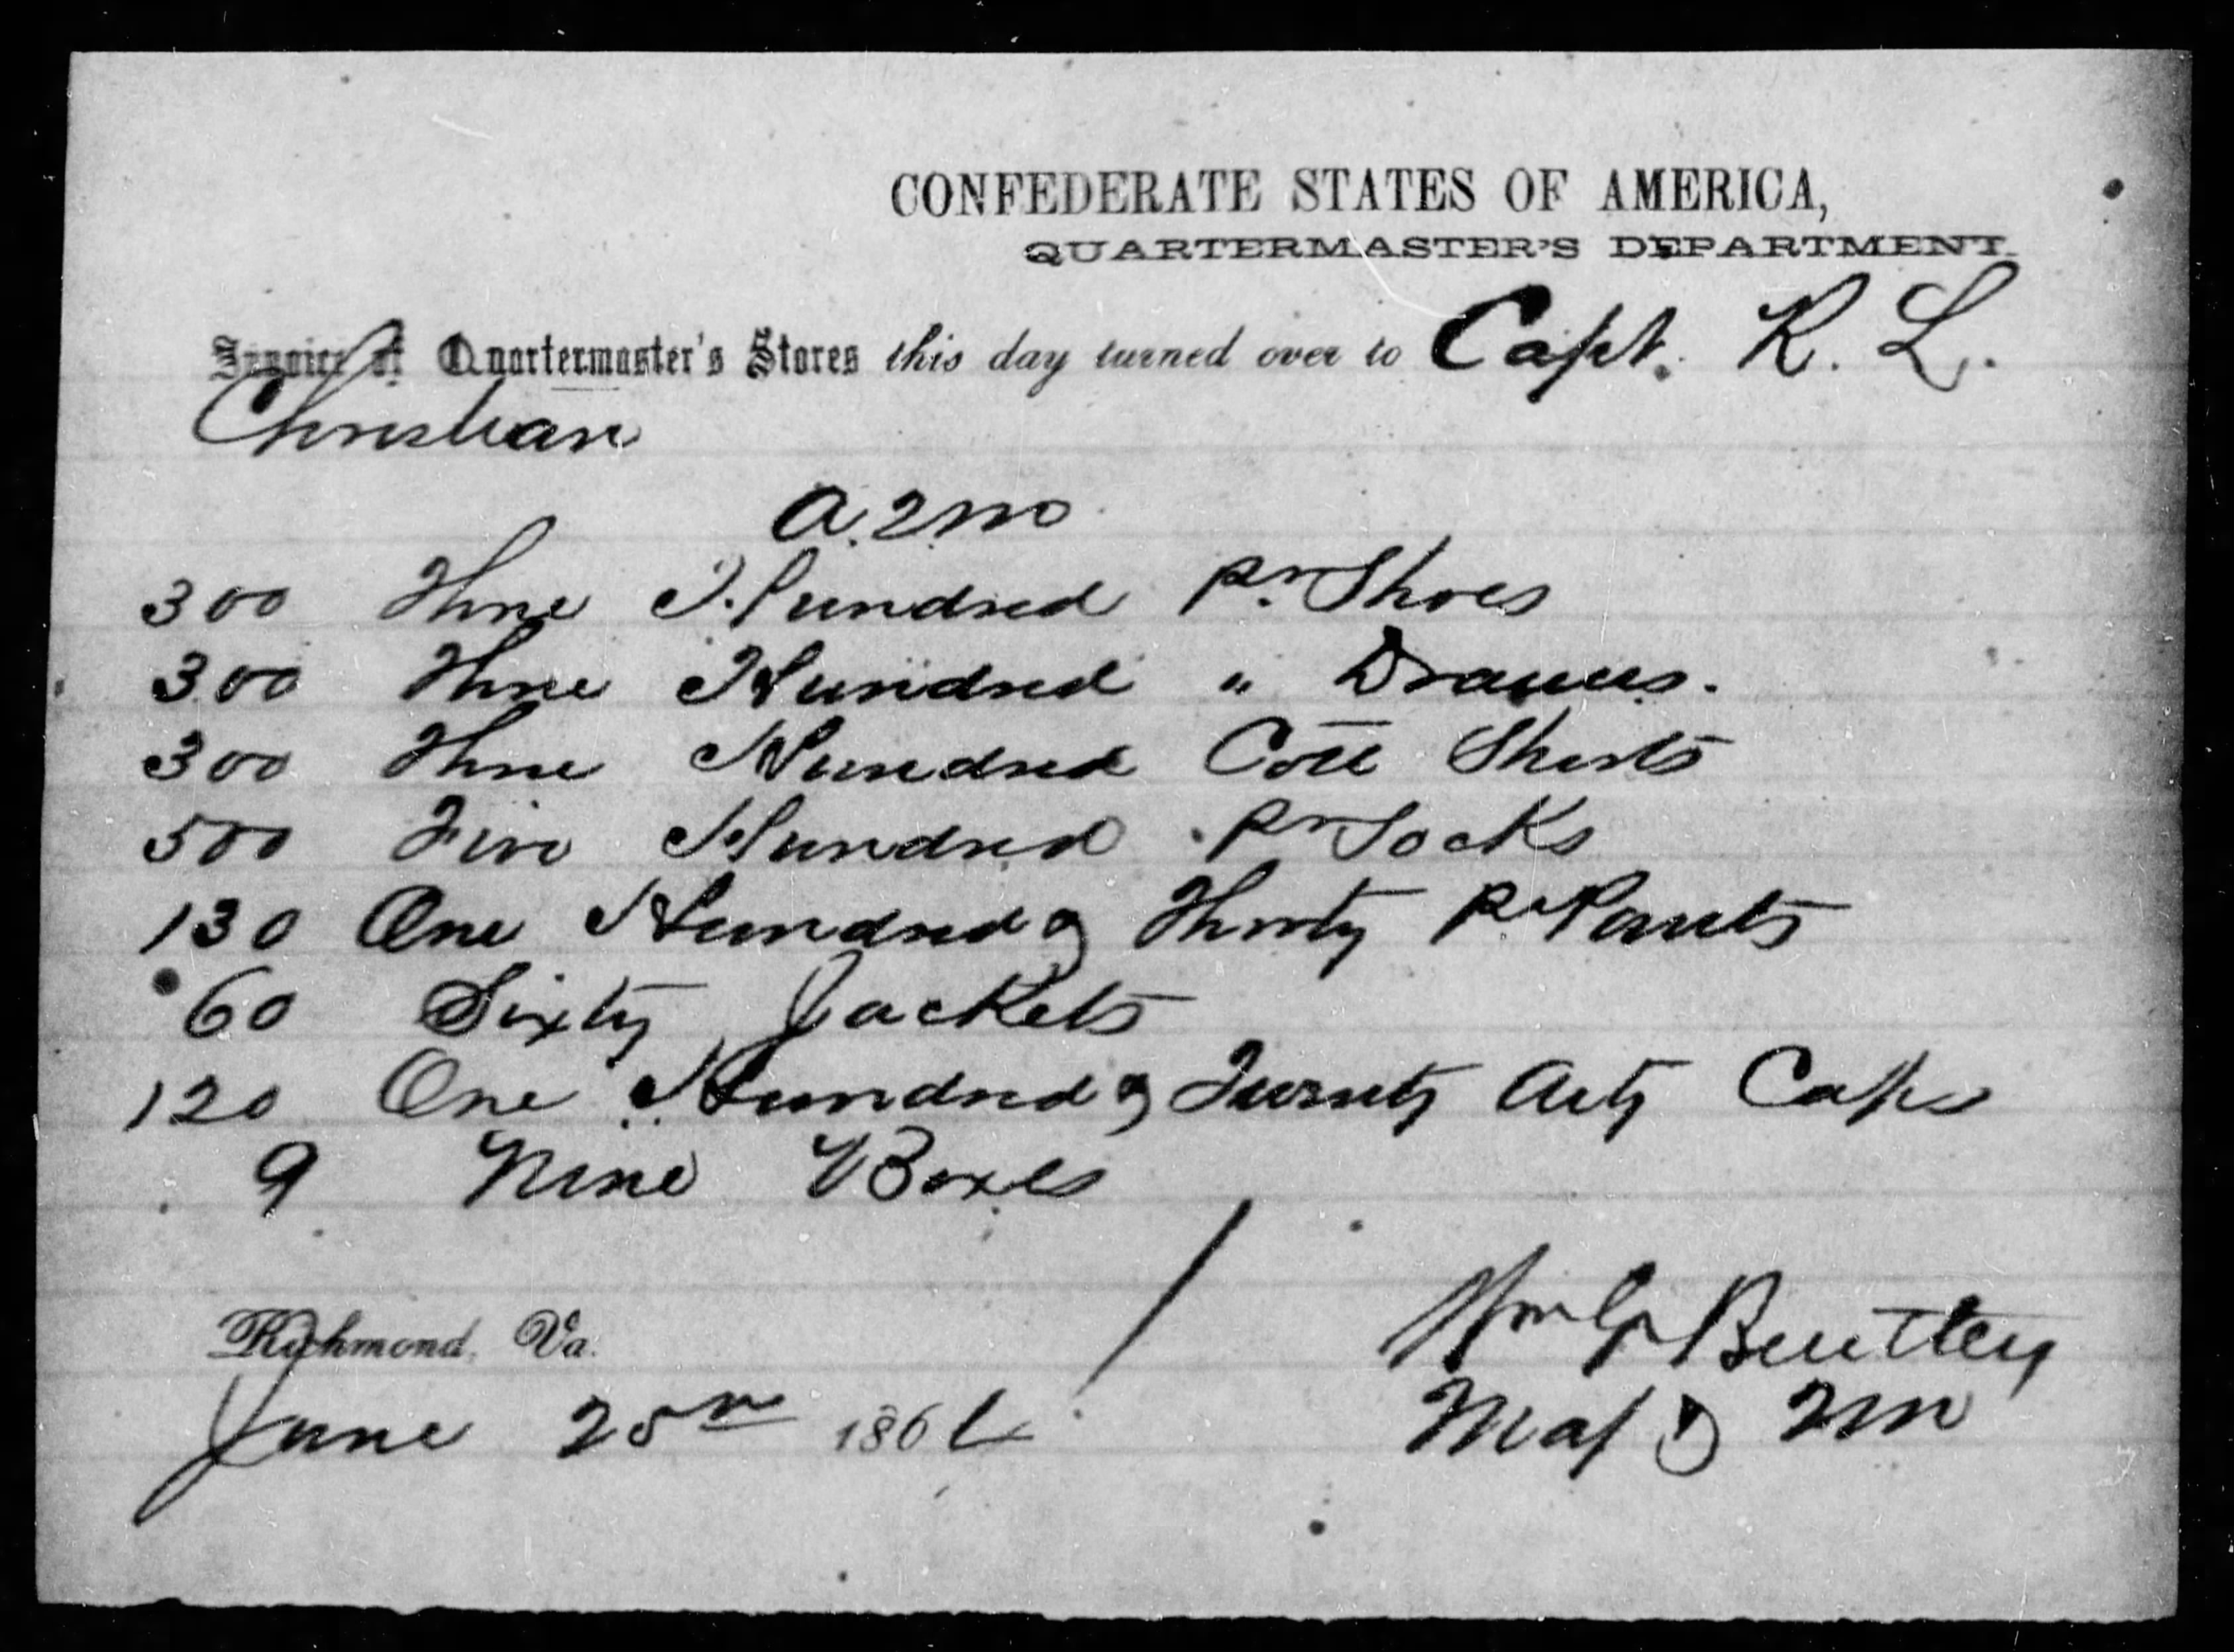 CONFEDERATE STATES OF AMERICA,
QUARTERMASTER'S DEPARTMENT.
Invoice of Quartermaster's Stores this day turned over to Capt. R. L.
Christian
A.Q.M.
300 Three Hundred Pr Shoes
300 Three Hundred " Drawers.
300 Three Hundred Cott Shirts
500 Five Hundred Pr Socks
130 One Hundred & Thirty Pr Pants
60 Sixty Jackets
120 One Hundred & Twenty Arty Caps
9 Nine Boxes
Richmond, Va.
Wm G Bentley
June 25th 1864
Maj & QM